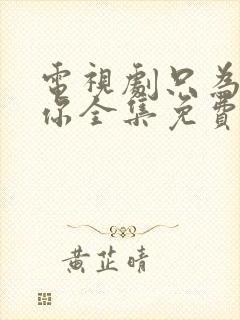 電視劇只為
你全集免費
黃芷晴